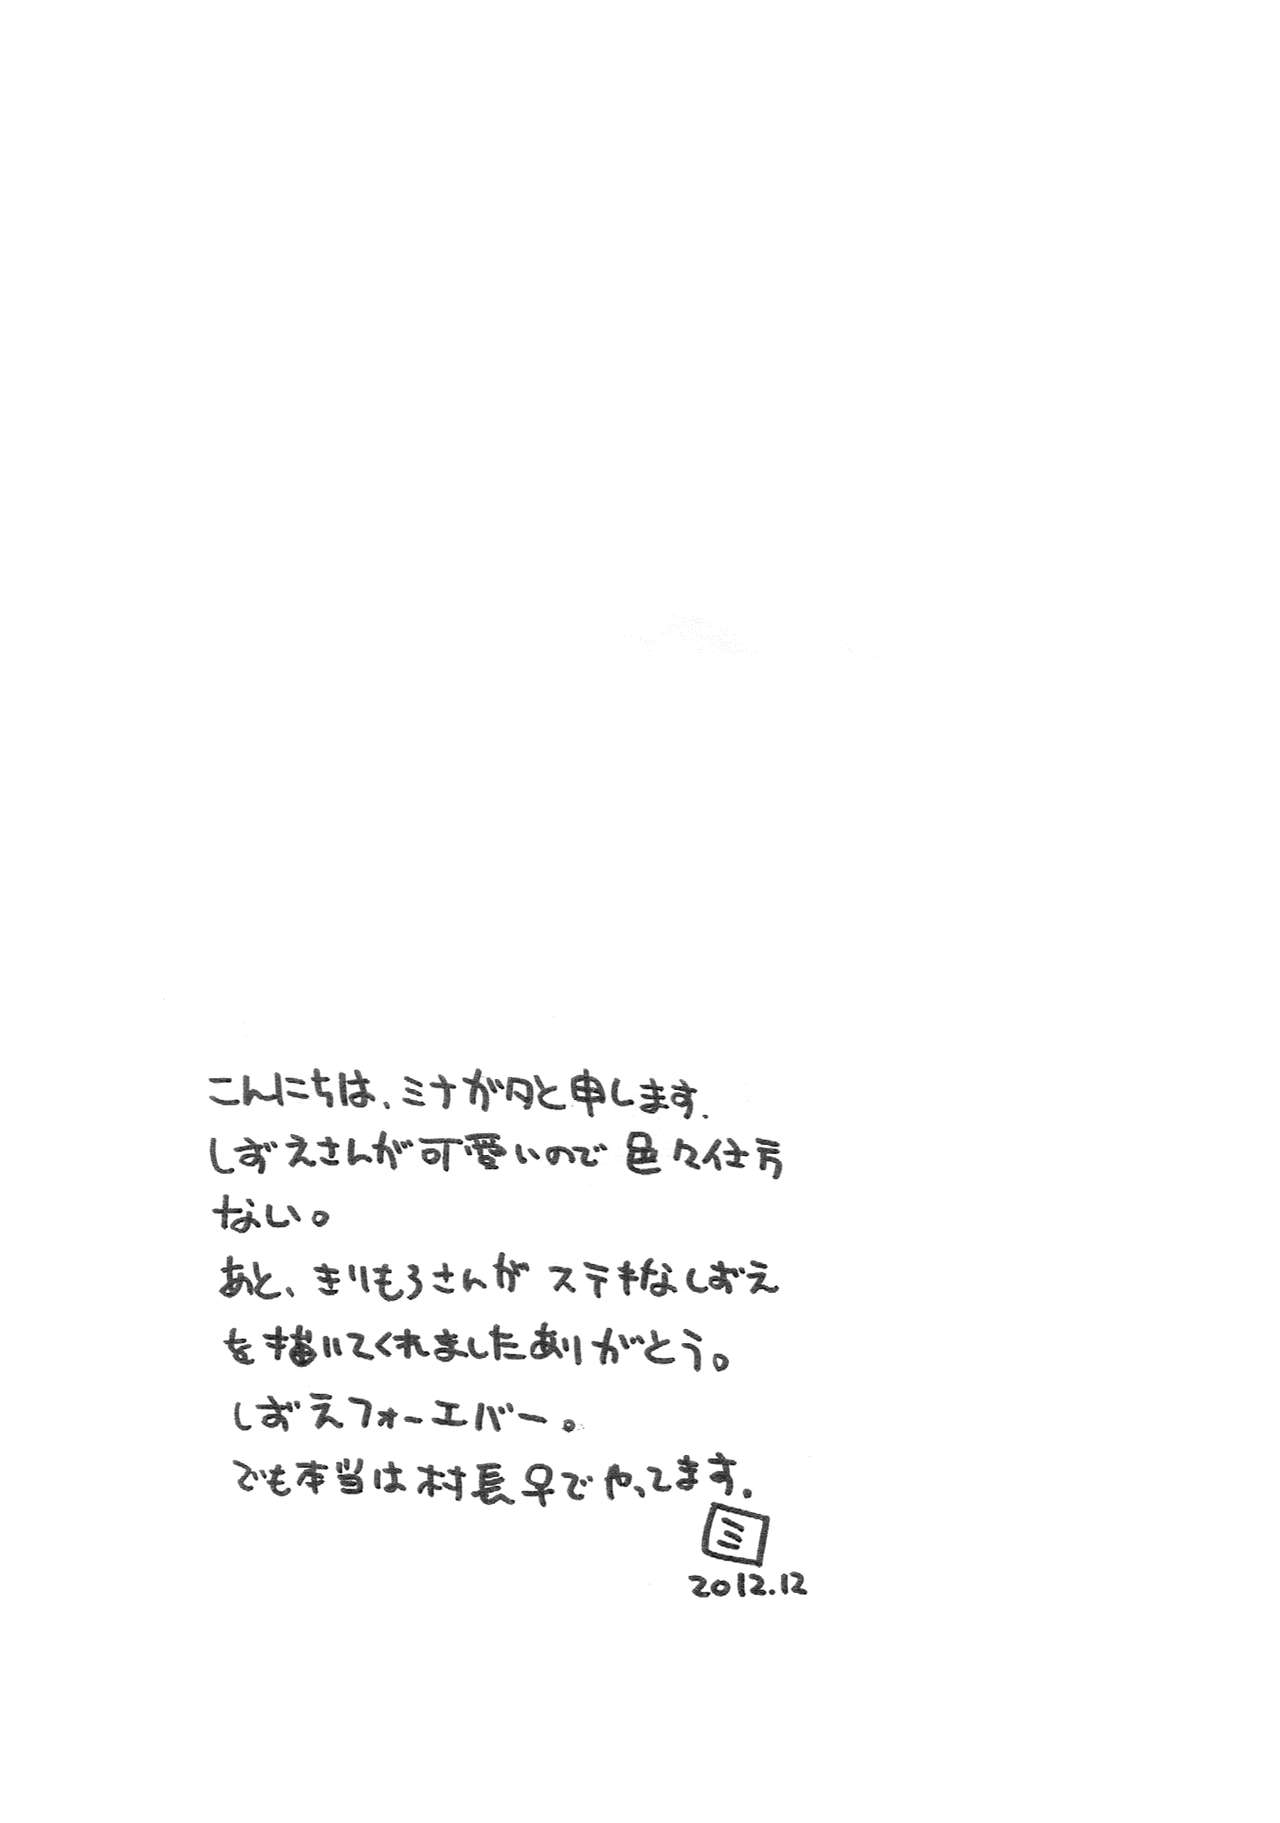 こんにちは、ミナガタと申します.
しずえさんが可愛いので色々仕方
ない。
あと、きりもろさんがステキなしずえ
を描いてくれましたありがとう。
しずえフォーエバー。
でも本当は村長♀でやってます.
ミ
2012.12